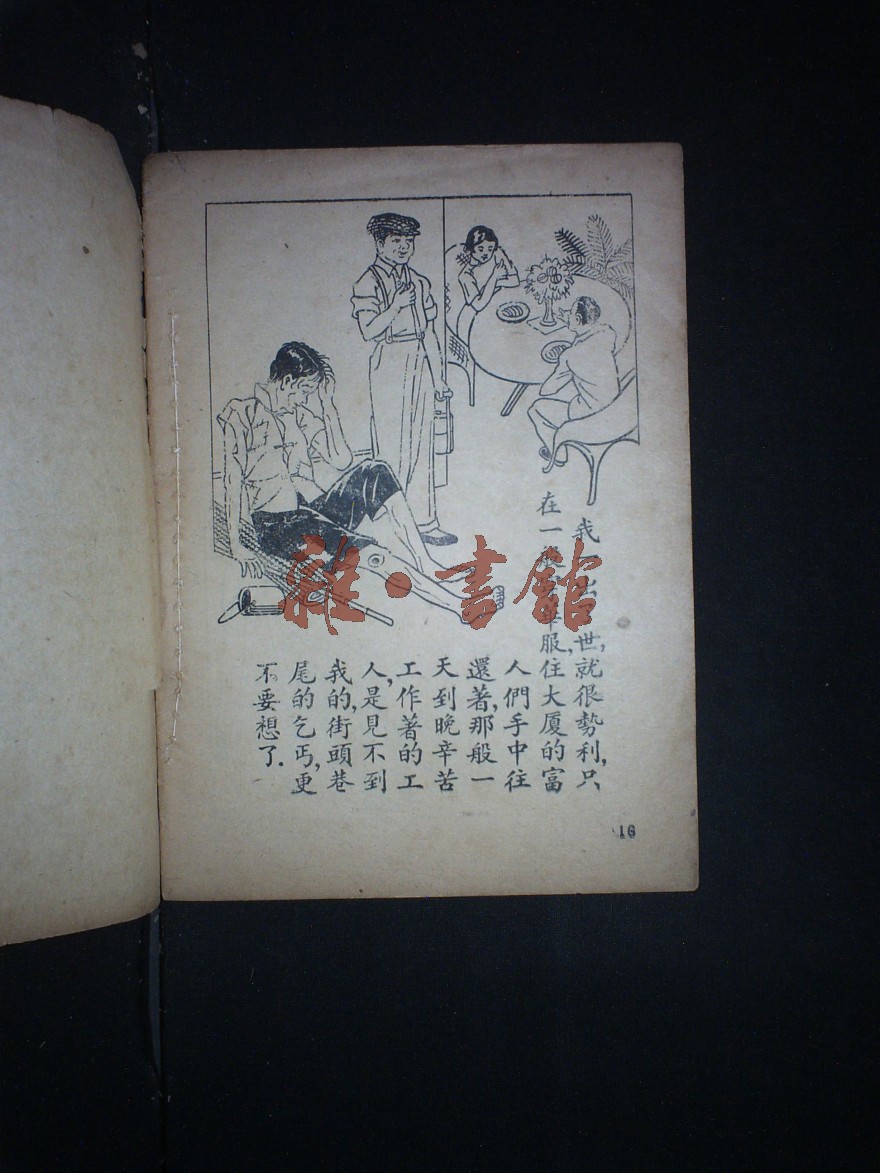 我一出了世,就很勢利,只
在一般穿華服,住大厦的富
人們手中往
還著,那般一
天到晚辛苦
工作著的工
人,是見不到
我的,街頭巷
尾的乞丐,更
不要想了.
16
雜·書館